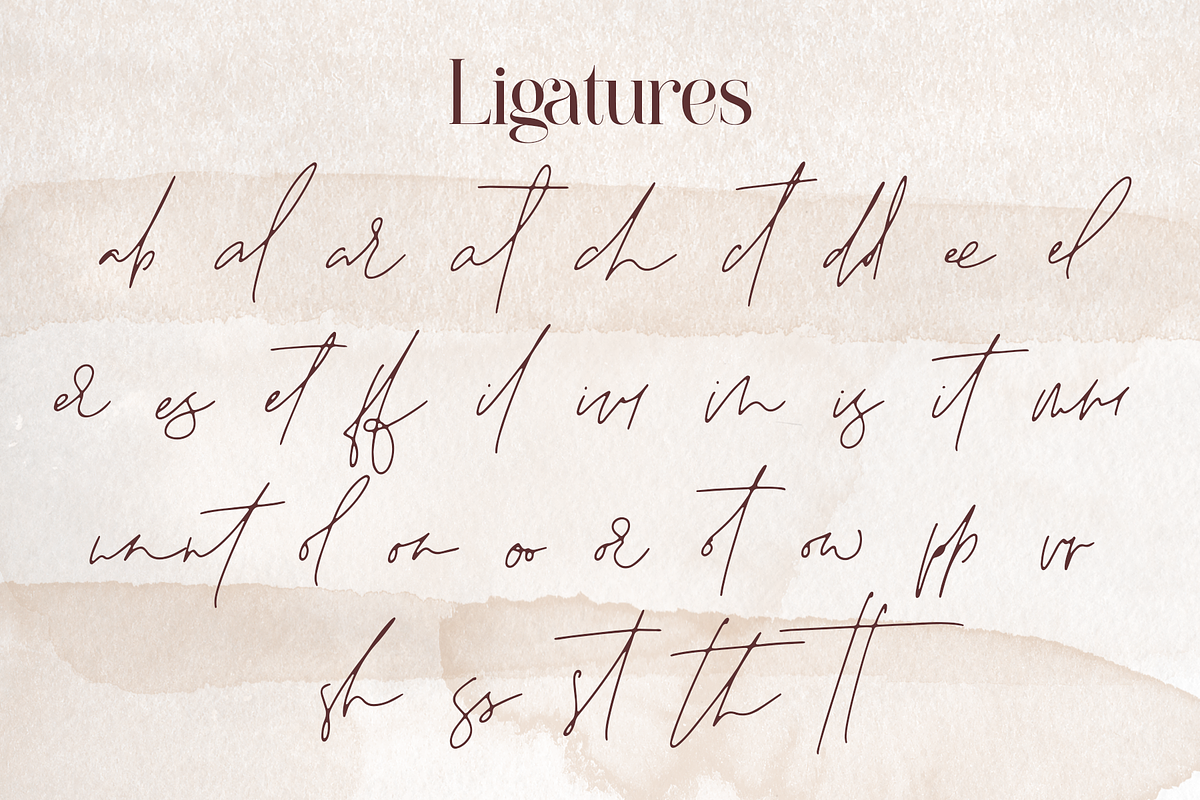 Ligatures
ab al ar at ch ct dd ee el
er es et ff il im in is it mm
nn nt ol on oo or ot ow pp rr
sh ss st th tt